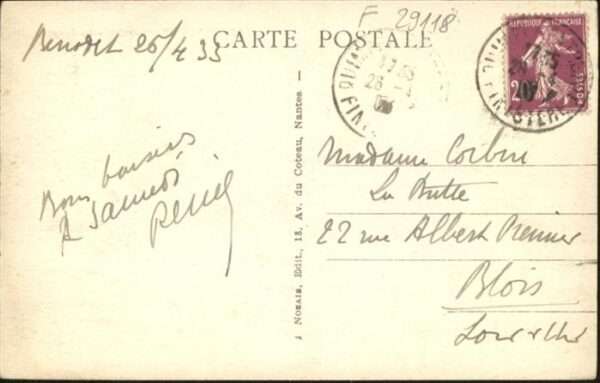 F 29118
Benodet 26/4 33
CARTE POSTALE
QUIM
17 35
26 -4
FINI
REPUBLIQUE FRANÇAISE
POSTES
20c
FINISTERE
Bons baisers
A samedi
René
J Nozais, Edit., 13, Av. du Coteau, Nantes -
Madame Corbin
La Butte
22 rue Albert Premier
Blois
Loir et Cher